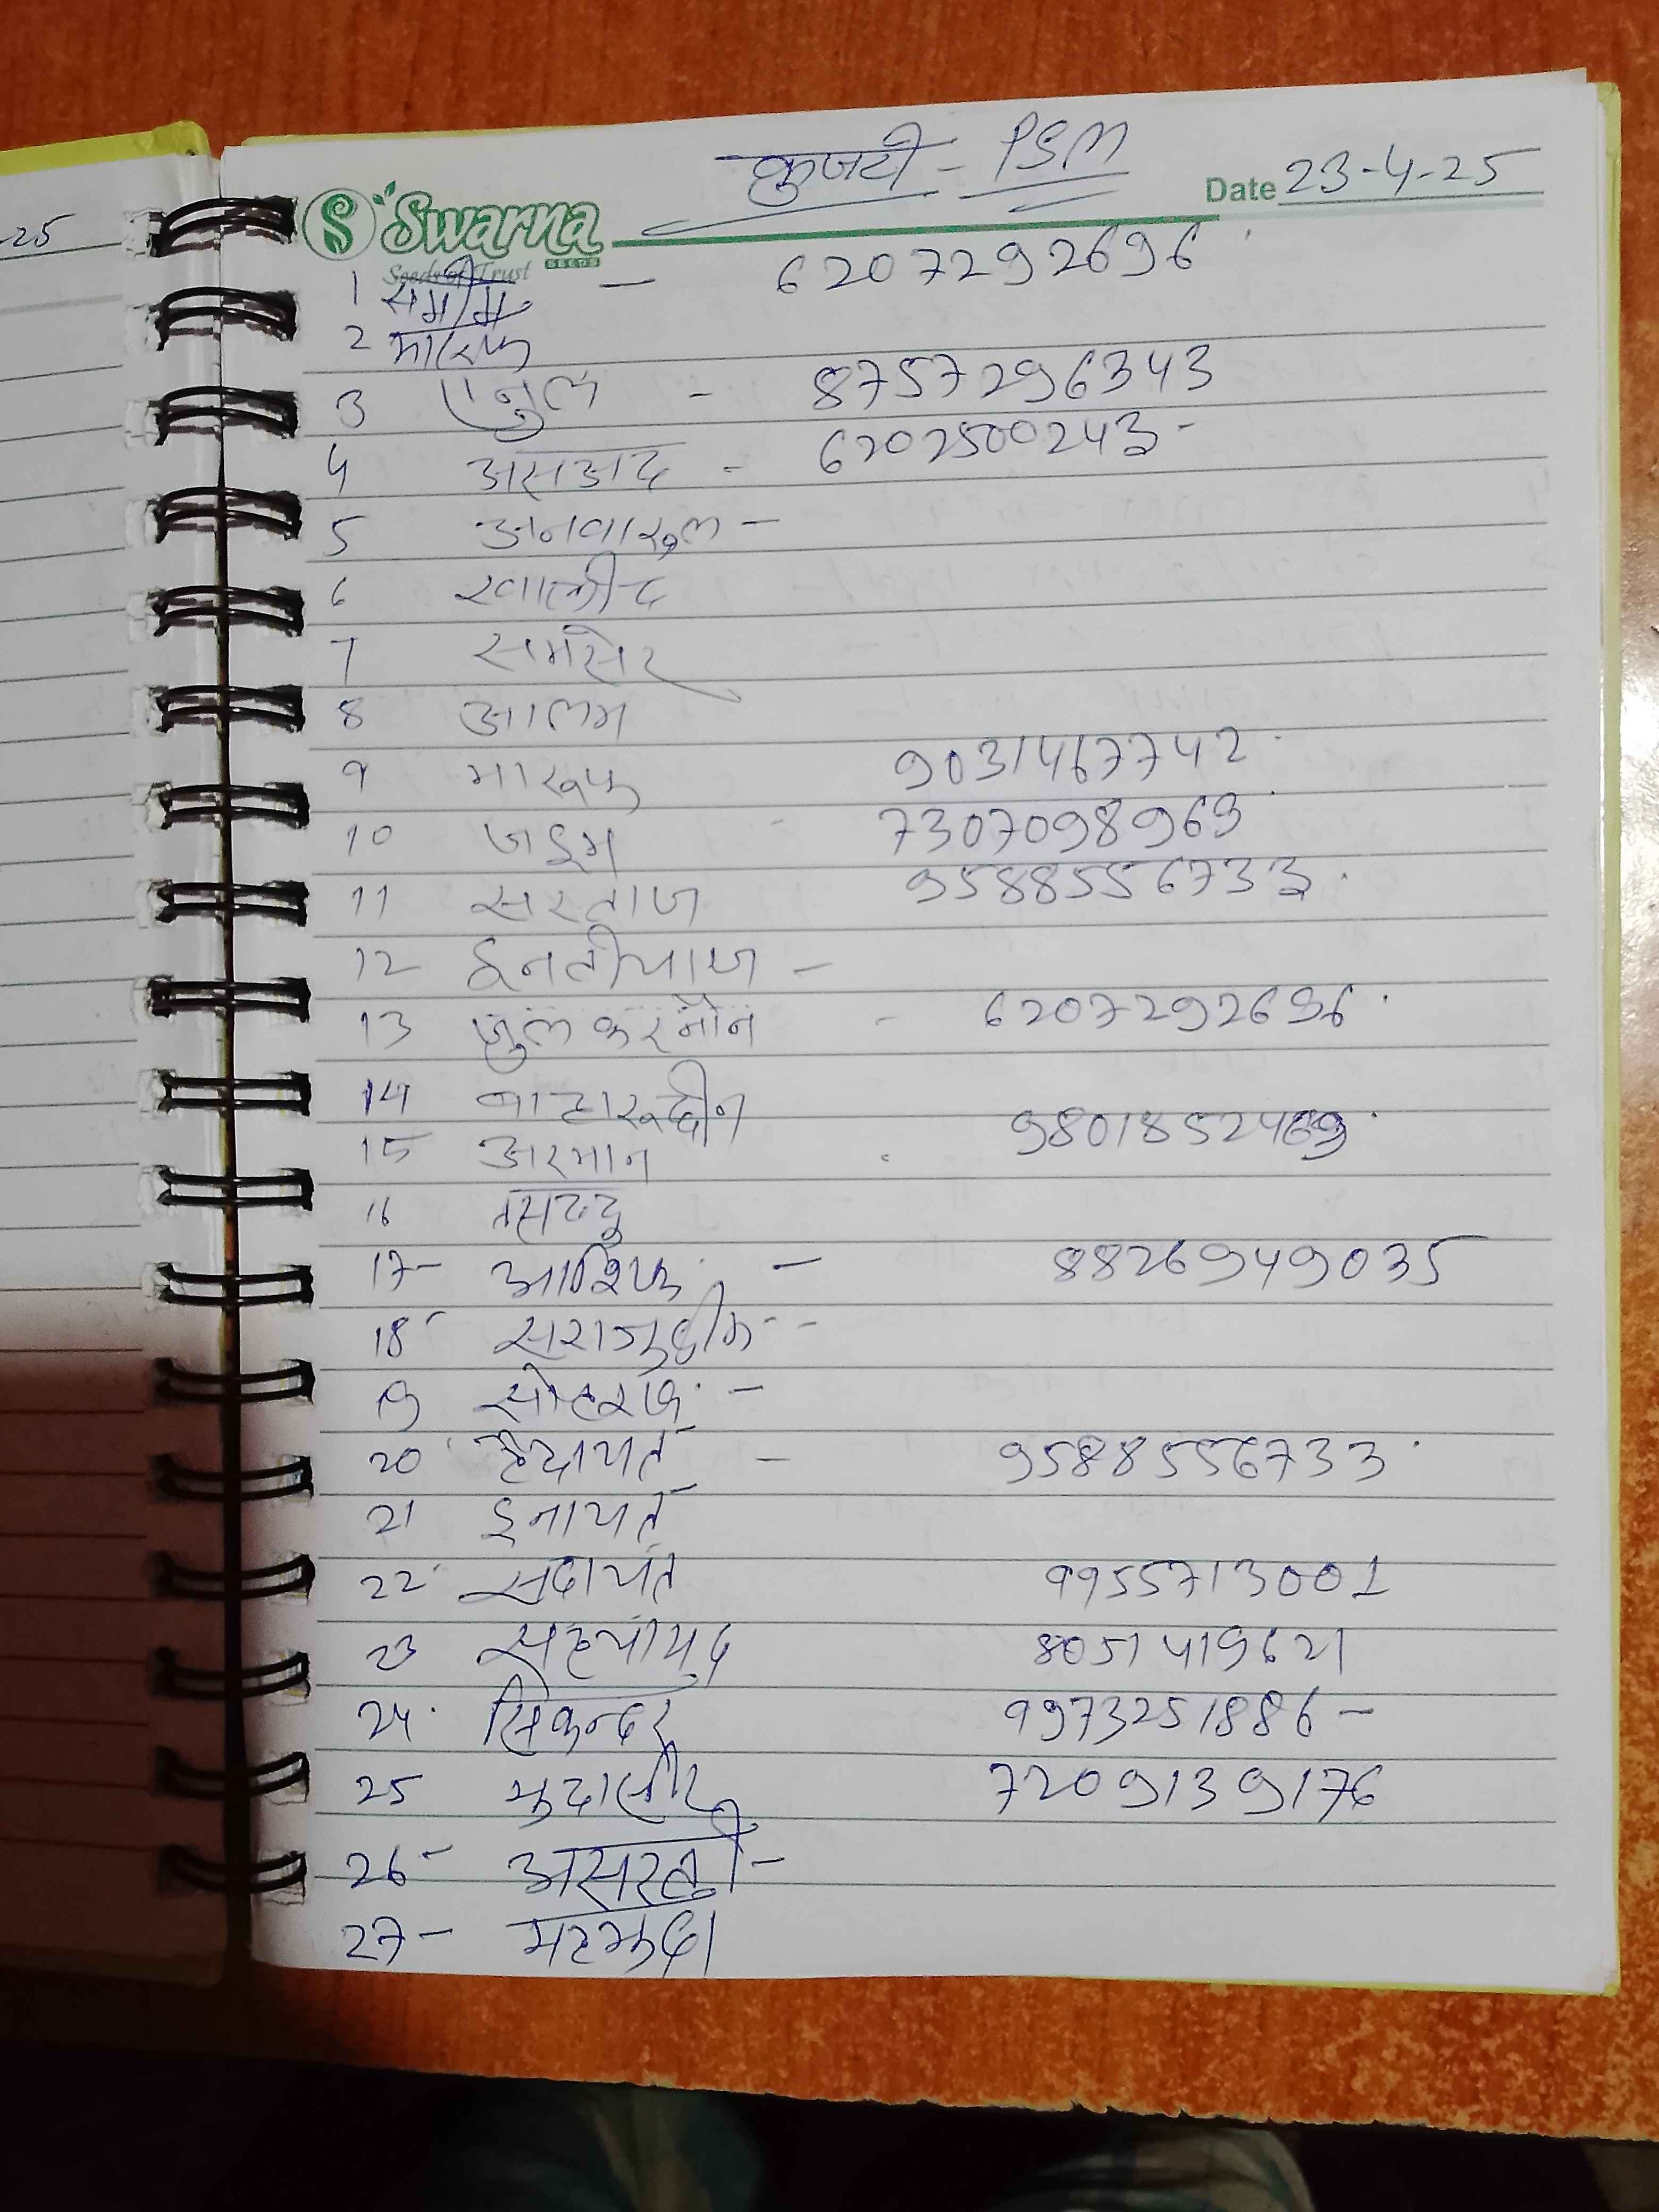 -25
कुजटी - PSM
Swarna SEEDS Date 23-4-25
Seeds of Trust
1 समीम - 6207292696
2 मारूफ
3 एनुल - 8757296343
4 असआद - 6202500243 -
5 अनवारूल -
6 खालीद
7 समसेर
8 आलम
9 मारूफ 9031467742
10 जइम - 7307098969
11 सरताज 9588556733
12 ईनतीयाज -
13 जुलकरनैन - 6207292696
14 बाहारूद्दीन
15 अरमान 9801852469
16
17- आशिफ - 8826949035
18 सराजुद्दीन --
19 सोहराज -
20 हेदायत - 9588556733
21 इनायत
22 सदायत 9955713001
23 8051419621
24. सिकन्दर 9973251886 -
25 7209139176
26 - असरफी -
27 -